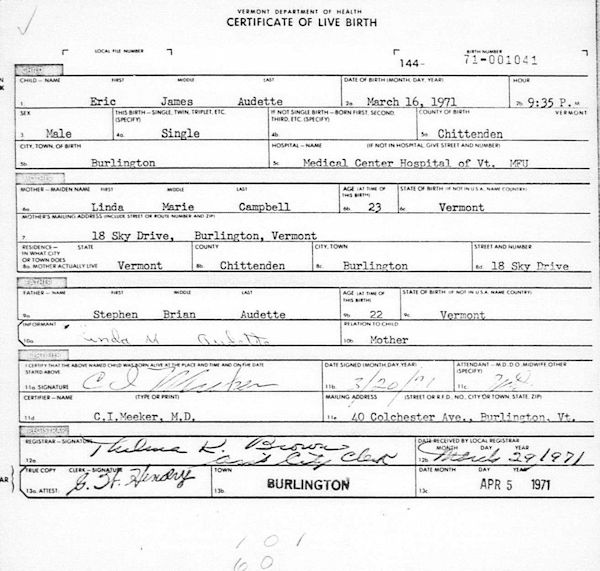 VERMONT DEPARTMENT OF HEALTH
CERTIFICATE OF LIVE BIRTH
LOCAL FILE NUMBER
BIRTH NUMBER
144- 71-001041
CHILD
CHILD — NAME FIRST MIDDLE LAST DATE OF BIRTH (MONTH, DAY, YEAR) HOUR
1. Eric James Audette 2a March 16, 1971 2b 9:35 P. M
SEX THIS BIRTH — SINGLE, TWIN, TRIPLET, ETC. (SPECIFY) IF NOT SINGLE BIRTH — BORN FIRST, SECOND, THIRD, ETC. (SPECIFY) COUNTY OF BIRTH VERMONT
3 Male 4a Single 4b 5a Chittenden
CITY, TOWN, OF BIRTH HOSPITAL — NAME (IF NOT IN HOSPITAL, GIVE STREET AND NUMBER)
5b Burlington 5c Medical Center Hospital of Vt. MFU
MOTHER
MOTHER — MAIDEN NAME FIRST MIDDLE LAST AGE (AT TIME OF THIS BIRTH) STATE OF BIRTH (IF NOT IN U.S.A. NAME COUNTRY)
6a Linda Marie Campbell 6b 23 6c Vermont
MOTHER'S MAILING ADDRESS (INCLUDE STREET OR ROUTE NUMBER AND ZIP)
7 18 Sky Drive, Burlington, Vermont
RESIDENCE — IN WHAT CITY OR TOWN DOES MOTHER ACTUALLY LIVE STATE COUNTY CITY, TOWN STREET AND NUMBER
8a Vermont 8b Chittenden 8c Burlington 8d 18 Sky Drive
FATHER
FATHER — NAME FIRST MIDDLE LAST AGE (AT TIME OF THIS BIRTH) STATE OF BIRTH (IF NOT IN U.S.A. NAME COUNTRY)
9a Stephen Brian Audette 9b 22 9c Vermont
INFORMANT RELATION TO CHILD
10a Linda M Audette 10b Mother
I CERTIFY THAT THE ABOVE NAMED CHILD WAS BORN ALIVE AT THE PLACE AND TIME AND ON THE DATE STATED ABOVE DATE SIGNED (MONTH, DAY, YEAR) ATTENDANT — M.D., D.O., MIDWIFE, OTHER (SPECIFY)
11a SIGNATURE C I Meeker 11b 3/20/71 11c
CERTIFIER — NAME (TYPE OR PRINT) MAILING ADDRESS (STREET OR R.F.D. NO., CITY OR TOWN, STATE, ZIP)
11d C.I.Meeker, M.D. 11e 40 Colchester Ave., Burlington, Vt.
REGISTRAR
REGISTRAR — SIGNATURE DATE RECEIVED BY LOCAL REGISTRAR
MONTH DAY YEAR
12a Thelma K. Brown City Clerk 12b March 29 1971
TRUE COPY CLERK — SIGNATURE TOWN DATE MONTH DAY YEAR
13a. ATTEST. 13b. BURLINGTON 13c. APR 5 1971
1 0 1
6 0